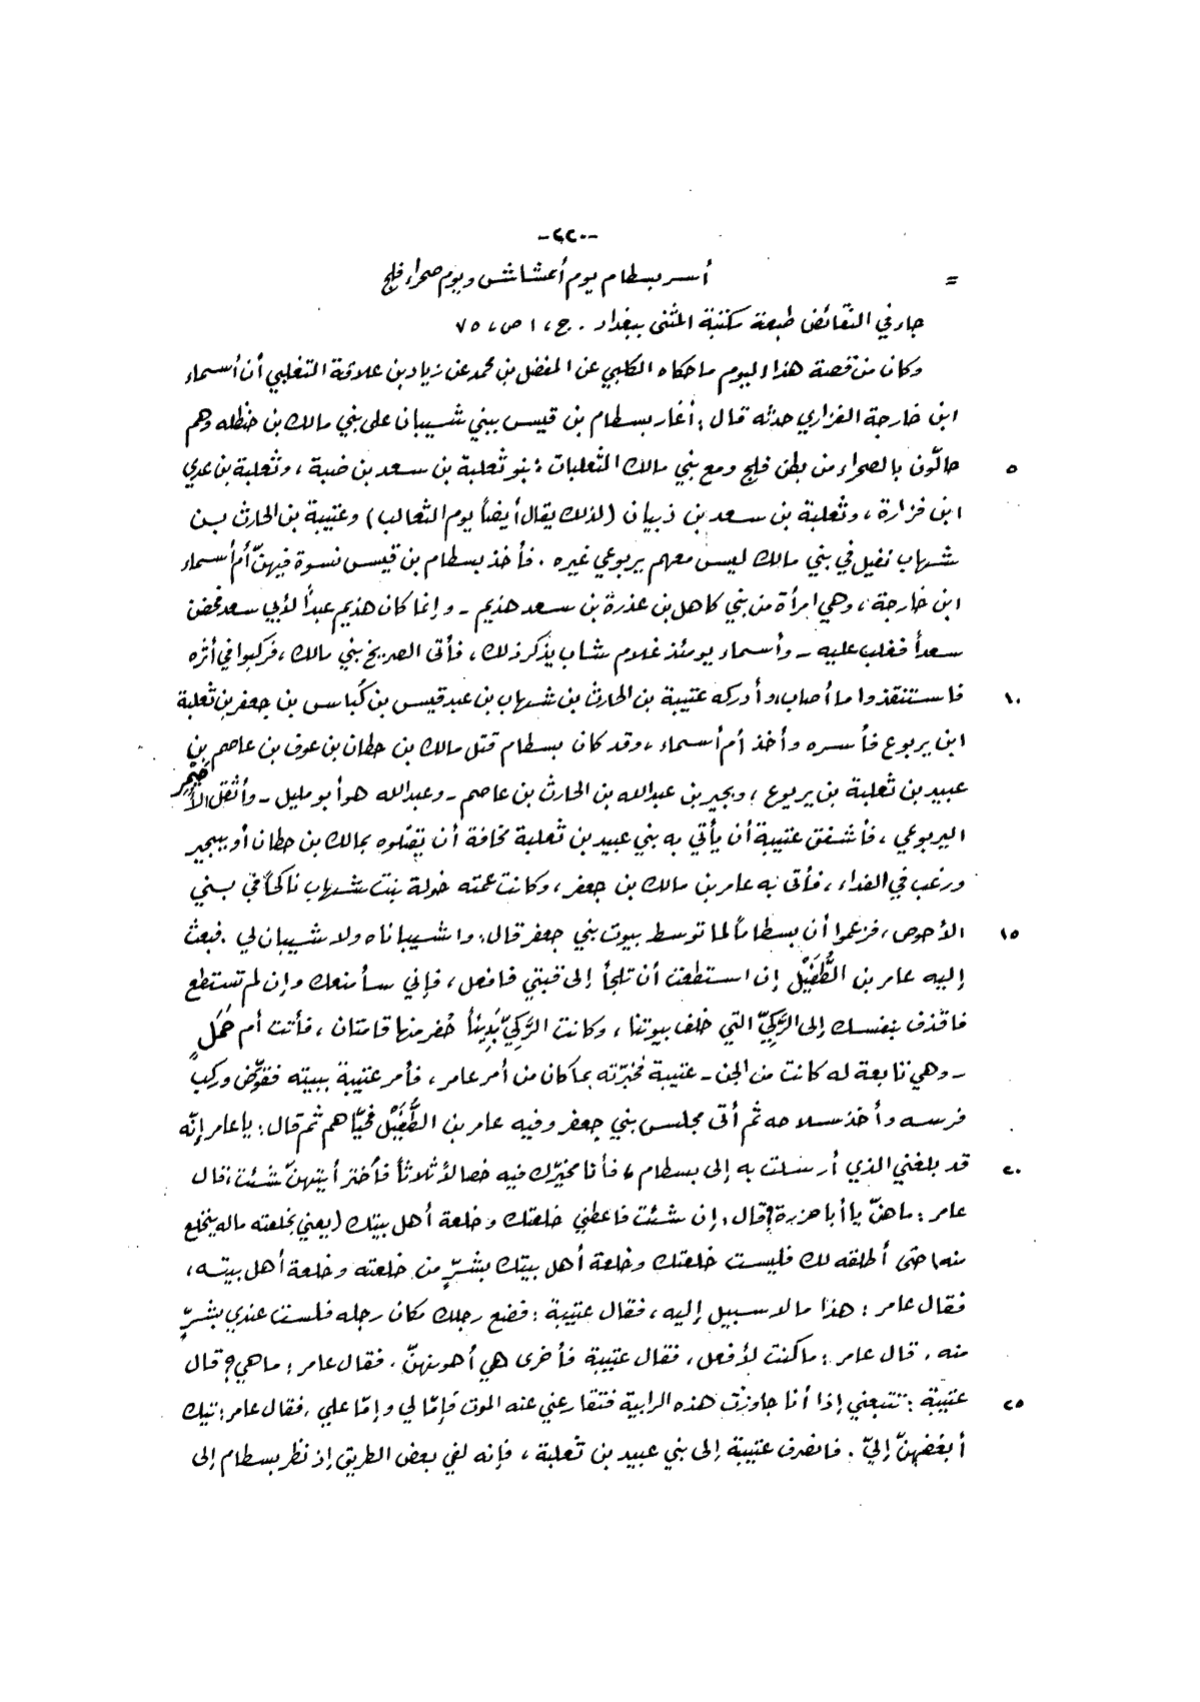 -٢٢٠-
= أسر بسطام يوم أعشاش ويوم صحراء فلج
جاء في النقائض طبعة مكتبة المثنى ببغداد . ج، ١ ص، ٧٥
وكان من قصة هذا اليوم ما حكاه الكلبي عن المفضل بن محمد عن زياد بن علاقة التغلبي أن أسماء
ابن خارجة الفزاري حدثه قال : أغار بسطام بن قيس ببني شيبان على بني مالك بن حنظله وهم
٥ حالّون بالصحراء من بطن فلج ومع بني مالك الثعلبات : بنو ثعلبة بن سعد بن ضبة ، وثعلبة بن عدي
ابن فزارة ، وثعلبة بن سعد بن ذبيان (لذلك يقال أيضاً يوم الثعالب) وعتيبة بن الحارث بن
شهاب نفيل في بني مالك ليس معهم يربوعي غيره . فأخذ بسطام بن قيس نسوة فيهنّ أم أسماء
ابن خارجة ، وهي امرأة من بني كاهل بن عذرة بن سعد هذيم - وإنما كان هذيم عبداً لأبي سعد فحضن
سعداً فغلب عليه - وأسماء يومئذ غلام شاب يذكر ذلك ، فأتى الصريخ بني مالك ، فركبوا في أثره
١٠ فاستنقذوا ما أصاب، وأدركه عتيبة بن الحارث بن شهاب بن عبد قيس بن كُباس بن جعفر بن ثعلبة
ابن يربوع فأسره وأخذ أم أسماء ، وقد كان بسطام قتل مالك بن حطان بن عوف بن عاصم بن
عبيد بن ثعلبة بن يربوع ، وبجير بن عبدالله بن الحارث بن عاصم - وعبدالله هو أبو مليل - وأثقل الأحيمر
اليربوعي ، فأشفق عتيبة أن يأتي به بني عبيد بن ثعلبة مخافة أن يقتلوه بمالك بن حطان أو ببجير
ورغب في الفداء ، فأتى به عامر بن مالك بن جعفر ، وكانت عمته خولة بنت شهاب ناكحاً في بني
١٥ الأحوص ، فزعموا أن بسطاماً لما توسط بيوت بني جعفر قال : وا شيباناه ولا شيبان لي . فبعث
إليه عامر بن الطُّفَيْل إن استطعت أن تلجأ إلى قبتي فافعل ، فإني سأمنعك وإن لم تستطع
فاقذف بنفسك إلى الرَّكِيّ التي خلف بيوتنا ، وكانت الرَّكِيّ بَدِيئاً حُفر منها قامتان ، فأتت أم حَمَلٍ
- وهي تابعة له كانت من الجن - عتيبة فخبّرته بما كان من أمر عامر ، فأمر عتيبة ببيته فقوّض وركب
فرسه وأخذ سلاحه ثم أتى مجلس بني جعفر وفيه عامر بن الطُّفَيْل فحيّاهم ثم قال : يا عامر إنّه
٢٠ قد بلغني الذي أرسلت به إلى بسطام ، فأنا مخيّرك فيه خصالاً ثلاثاً فاختر أيتهنّ شئت ، قال
عامر : ما هنّ يا أبا حزرة ؟ قال : إن شئت فاعطني خلعتك وخلعة أهل بيتك (يعني بخلعته ماله ينخلع
منه) حتى أطلقه لك فليست خلعتك وخلعة أهل بيتك بشرٍّ من خلعته وخلعة أهل بيته ،
فقال عامر : هذا ما لا سبيل إليه ، فقال عتيبة : فضع رجلك مكان رجله فلست عندي بشرٍّ
منه . قال عامر : ما كنت لأفعل ، فقال عتيبة فأخرى هي أهونهنّ . فقال عامر : ما هي ؟ قال
٢٥ عتيبة : تتبعني إذا أنا جاوزت هذه الرابية فتقارعني عنه الموت فإمّا لي وإمّا علي . فقال عامر : تيك
أبغضهنّ إليّ . فانصرف عتيبة إلى بني عبيد بن ثعلبة ، فإنه لفي بعض الطريق إذ نظر بسطام إلى